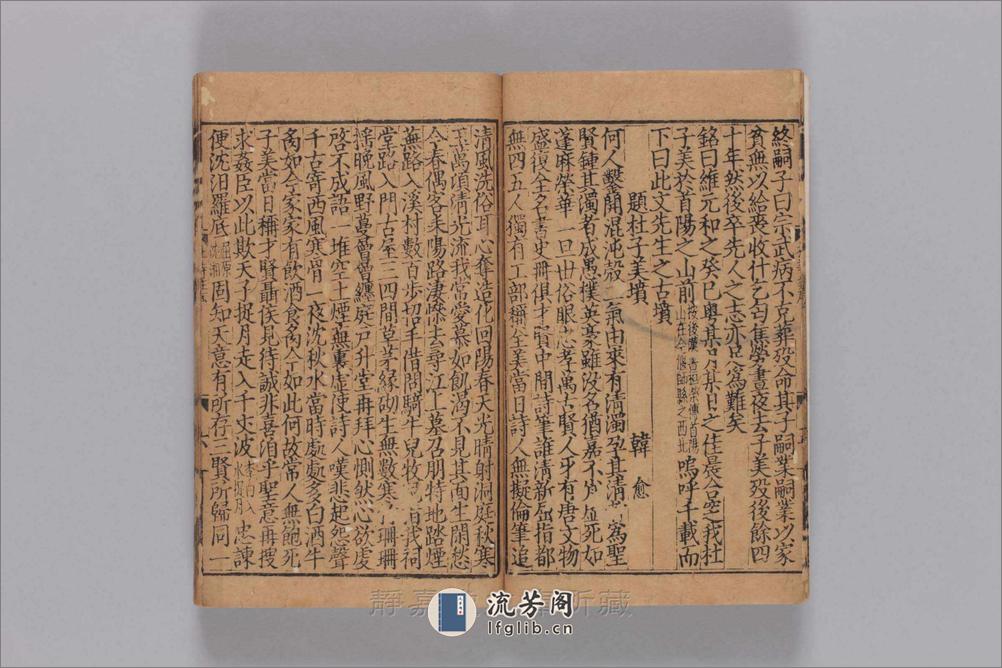 終嗣子曰宗武病不克葬殁命其子嗣業嗣業以家
貧無以給喪收什乞匄焦勞晝夜去子美殁後餘四
十年然後卒先人之志亦足爲難矣
銘曰維元和之癸巳粤某月某日之佳晨合窆我杜
子美於首陽之山前山在今偃師縣之西北嗚呼千載而
下曰此文先生之古墳
題杜子美墳
韓愈
何人鑿開混沌殼二氣由來有清濁孕其清者爲聖
賢鍾其濁者成愚樸英豪雖没名猶嘉不肖虚死如
蓬麻榮華一旦世俗眼忠孝萬古賢人牙有唐文物
盛復全名書史冊俱才賢中間詩筆誰清新屈指都
無四五人獨有工部稱全美當日詩人無擬倫筆追
清風洗俗耳心奪造化回陽春天光晴射洞庭秋寒
玉萬頃清光流我常愛慕如飢渴不見其面生閑愁
今春偶客耒陽路凄慘去尋江上墓召朋特地踏煙
蕪路入溪村數百歩招手借問騎牛兒牧兒指我祠
堂路入門古屋三四間草茅縁砌生無數寒竹珊珊
揺晚風野蔓曾曾纏庭户升堂再拜心惻愴心欲虔
啓不成語一堆空土煙蕪裏虚使詩人嘆悲起怨聲
千古寄西風寒骨一夜沈秋水當時處處多白酒牛
肉如今家家有飲酒食肉今如此何故常人無飽死
子美當日稱才賢聶侯見待誠非喜洎乎聖意再搜
求姦臣以此欺天子捉月走入千丈波李白入水捉月忠諫
便沈汨羅底屈原沈湘固知天意有所存三賢所歸同一
流芳阁
lfglib.cn